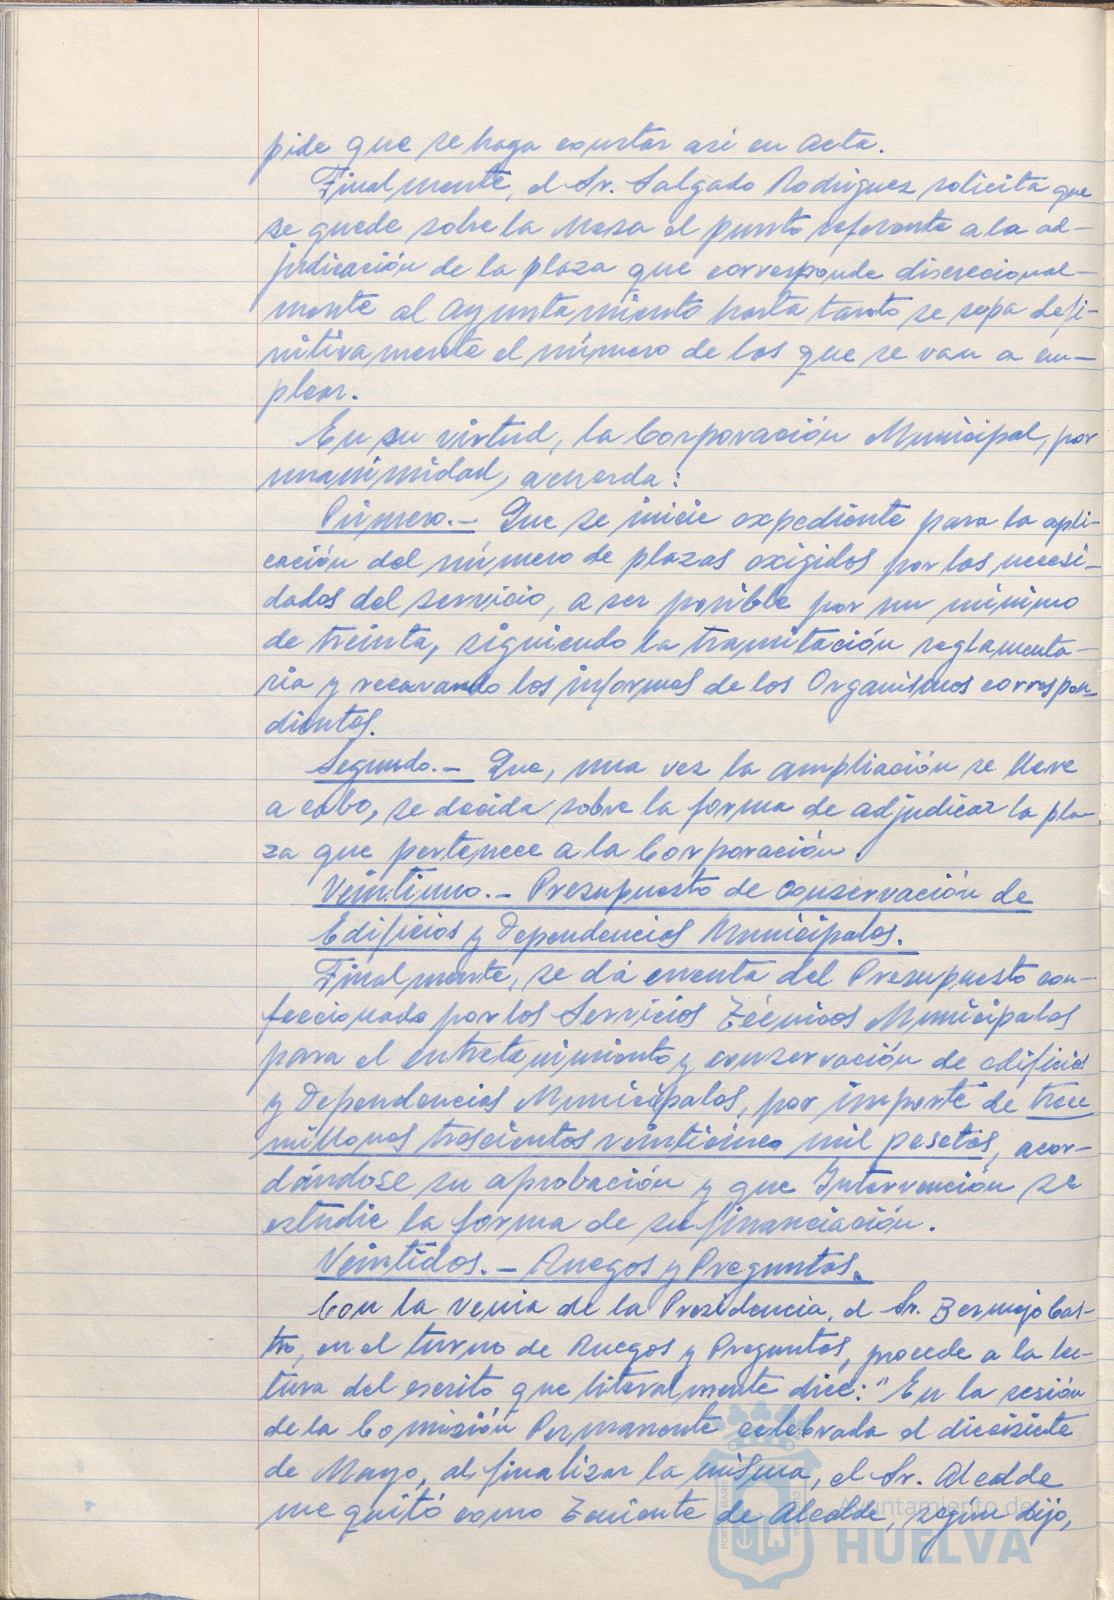 pide que se haga constar así en Acta.
Finalmente, el Sr. Salgado Rodríguez solicita que
se quede sobre la Mesa el punto referente a la ad-
judicación de la plaza que corresponde discrecional-
mente al Ayuntamiento hasta tanto se sepa defi-
nitivamente el número de los que se van a em-
plear.
En su virtud, la Corporación Municipal, por
unanimidad, acuerda:
Primero.- Que se inicie expediente para la apli-
cación del número de plazas exigidas por las necesi-
dades del servicio, a ser posible por un mínimo
de treinta, siguiendo la tramitación reglamenta-
ria y recavando los informes de los Organismos correspon-
dientes.
Segundo.- Que, una vez la ampliación se lleve
a cabo, se decida sobre la forma de adjudicar la pla-
za que pertenece a la Corporación.
Veintiuno.- Presupuesto de conservación de
Edificios y Dependencias Municipales.
Finalmente, se dá cuenta del Presupuesto con-
feccionado por los Servicios Técnicos Municipales
para el entretenimiento y conservación de edificios
y Dependencias Municipales, por importe de trece
millones trescientos veinticinco mil pesetas, acor-
dándose su aprobación y que Intervención se
estudie la forma de su financiación.
Veintidos.- Ruegos y Preguntas.
Con la venia de la Presidencia, el Sr. Bermejo Cas-
tro, en el turno de Ruegos y Preguntas, procede a la lec-
tura del escrito que literalmente dice: "En la sesión
de la Comisión Permanente celebrada el diecisiete
de Mayo, al finalizar la misma, el Sr. Alcalde
me quitó como Teniente de Alcalde, segun dijo,
Ayuntamiento de
HUELVA